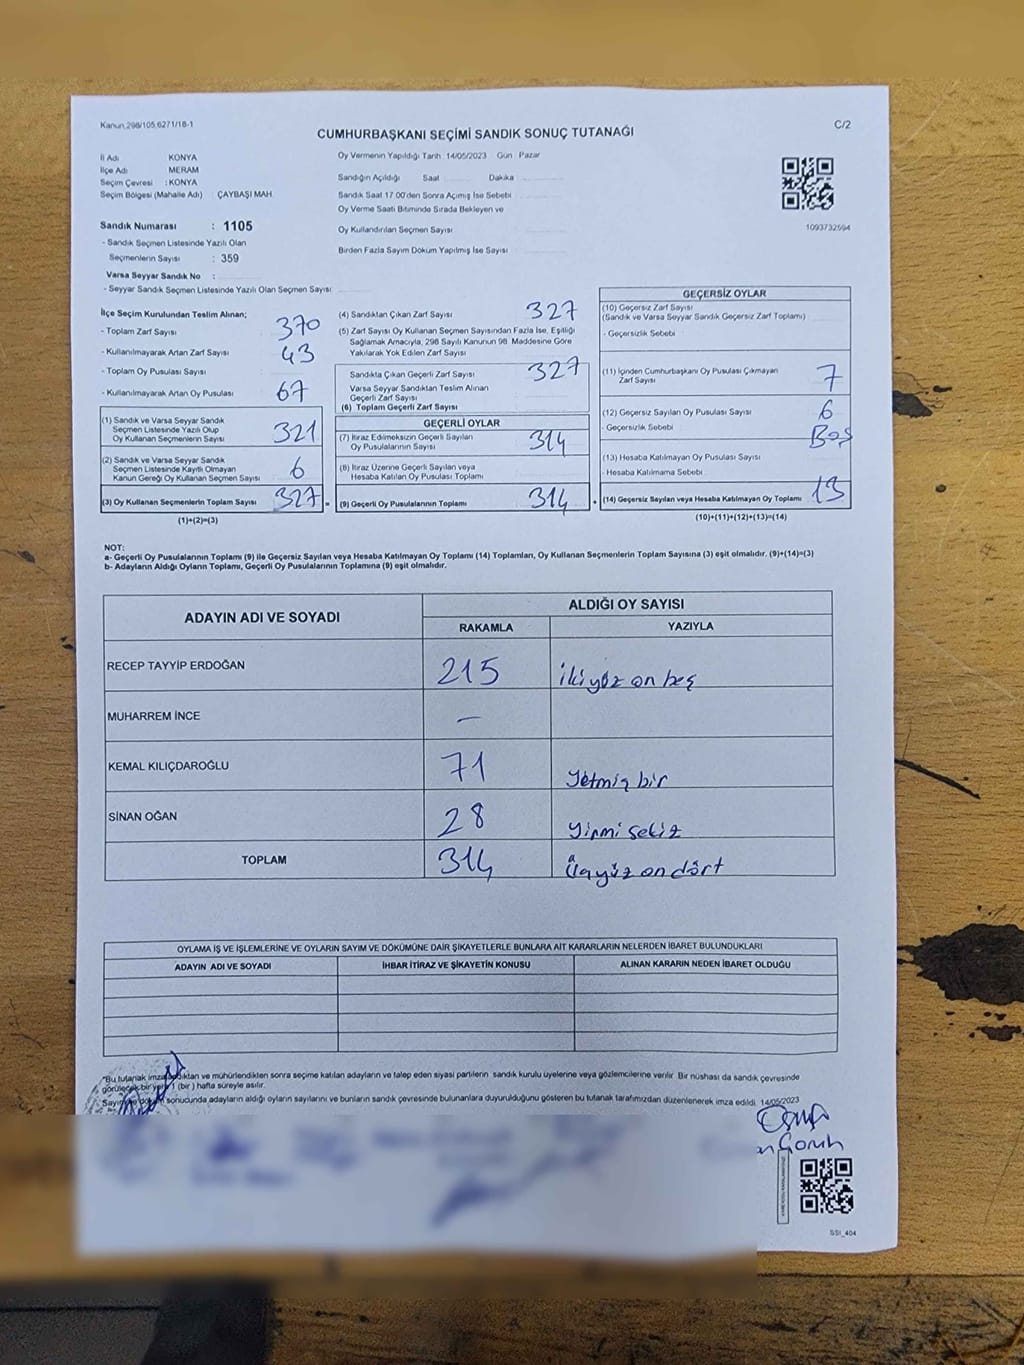 Kanun,298/105,6271/18-1
C/2
CUMHURBAŞKANI SEÇİMİ SANDIK SONUÇ TUTANAĞI
İl Adı KONYA
İlçe Adı MERAM
Seçim Çevresi : KONYA
Seçim Bölgesi (Mahalle Adı) : ÇAYBAŞI MAH.
Sandık Numarası : 1105
- Sandık Seçmen Listesinde Yazılı Olan
Seçmenlerin Sayısı : 359
Varsa Seyyar Sandık No :
- Seyyar Sandık Seçmen Listesinde Yazılı Olan Seçmen Sayısı
Oy Vermenin Yapıldığı Tarih 14/05/2023 Gün : Pazar
Sandığın Açıldığı Saat Dakika
Sandık Saat 17.00'den Sonra Açımış İse Sebebi
Oy Verme Saati Bitiminde Sırada Bekleyen ve
Oy Kullandırılan Seçmen Sayısı
Birden Fazla Sayım Döküm Yapılmış İse Sayısı
1093732594
İlçe Seçim Kurulundan Teslim Alınan;
- Toplam Zarf Sayısı 370
- Kullanılmayarak Artan Zarf Sayısı 43
- Toplam Oy Pusulası Sayısı
- Kullanılmayarak Artan Oy Pusulası 67
(1) Sandık ve Varsa Seyyar Sandık
Seçmen Listesinde Yazılı Olup
Oy Kullanan Seçmenlerin Sayısı 321
(2) Sandık ve Varsa Seyyar Sandık
Seçmen Listesinde Kayıtlı Olmayan
Kanun Gereği Oy Kullanan Seçmen Sayısı 6
(3) Oy Kullanan Seçmenlerin Toplam Sayısı 327 =
(1)+(2)=(3)
(4) Sandıktan Çıkan Zarf Sayısı 327
(5) Zarf Sayısı Oy Kullanan Seçmen Sayısından Fazla İse, Eşitliği
Sağlamak Amacıyla, 298 Sayılı Kanunun 98. Maddesine Göre
Yakılarak Yok Edilen Zarf Sayısı
Sandıkta Çıkan Geçerli Zarf Sayısı 327
Varsa Seyyar Sandıktan Teslim Alınan
Geçerli Zarf Sayısı
(6) Toplam Geçerli Zarf Sayısı
GEÇERLİ OYLAR
(7) İtiraz Edilmeksizin Geçerli Sayılan
Oy Pusulalarının Sayısı 314
(8) İtiraz Üzerine Geçerli Sayılan veya
Hesaba Katılan Oy Pusulası Toplamı
(9) Geçerli Oy Pusulalarının Toplamı 314 +
GEÇERSİZ OYLAR
(10) Geçersiz Zarf Sayısı
(Sandık ve Varsa Seyyar Sandık Geçersiz Zarf Toplamı)
- Geçersizlik Sebebi
(11) İçinden Cumhurbaşkanı Oy Pusulası Çıkmayan
Zarf Sayısı 7
(12) Geçersiz Sayılan Oy Pusulası Sayısı 6
- Geçersizlik Sebebi Boş
(13) Hesaba Katılmayan Oy Pusulası Sayısı
- Hesaba Katılmama Sebebi
(14) Geçersiz Sayılan veya Hesaba Katılmayan Oy Toplamı 13
(10)+(11)+(12)+(13)=(14)
NOT:
a- Geçerli Oy Pusulalarının Toplamı (9) ile Geçersiz Sayılan veya Hesaba Katılmayan Oy Toplamı (14) Toplamları, Oy Kullanan Seçmenlerin Toplam Sayısına (3) eşit olmalıdır. (9)+(14)=(3)
b- Adayların Aldığı Oyların Toplamı, Geçerli Oy Pusulalarının Toplamına (9) eşit olmalıdır.
ADAYIN ADI VE SOYADI
ALDIĞI OY SAYISI
RAKAMLA YAZIYLA
RECEP TAYYİP ERDOĞAN 215 iki yüz on beş
MUHARREM İNCE –
KEMAL KILIÇDAROĞLU 71 yetmiş bir
SİNAN OĞAN 28 yirmi sekiz
TOPLAM 314 üçyüz on dört
OYLAMA İŞ VE İŞLEMLERİNE VE OYLARIN SAYIM VE DÖKÜMÜNE DAİR ŞİKAYETLERLE BUNLARA AİT KARARLARIN NELERDEN İBARET BULUNDUKLARI
ADAYIN ADI VE SOYADI İHBAR İTİRAZ VE ŞİKAYETİN KONUSU ALINAN KARARIN NEDEN İBARET OLDUĞU
"Bu tutanak imzalandıktan ve mühürlendikten sonra seçime katılan adayların ve talep eden siyasi partilerin sandık kurulu üyelerine veya gözlemcilerine verilir. Bir nüshası da sandık çevresinde
görülecek bir yere 1 (bir ) hafta süreyle asılır.
Sayım ve döküm sonucunda adayların aldığı oyların sayılarını ve bunların sandık çevresinde bulunanlara duyurulduğunu gösteren bu tutanak tarafımızdan düzenlenerek imza edildi. 14/05/2023
SSI_404